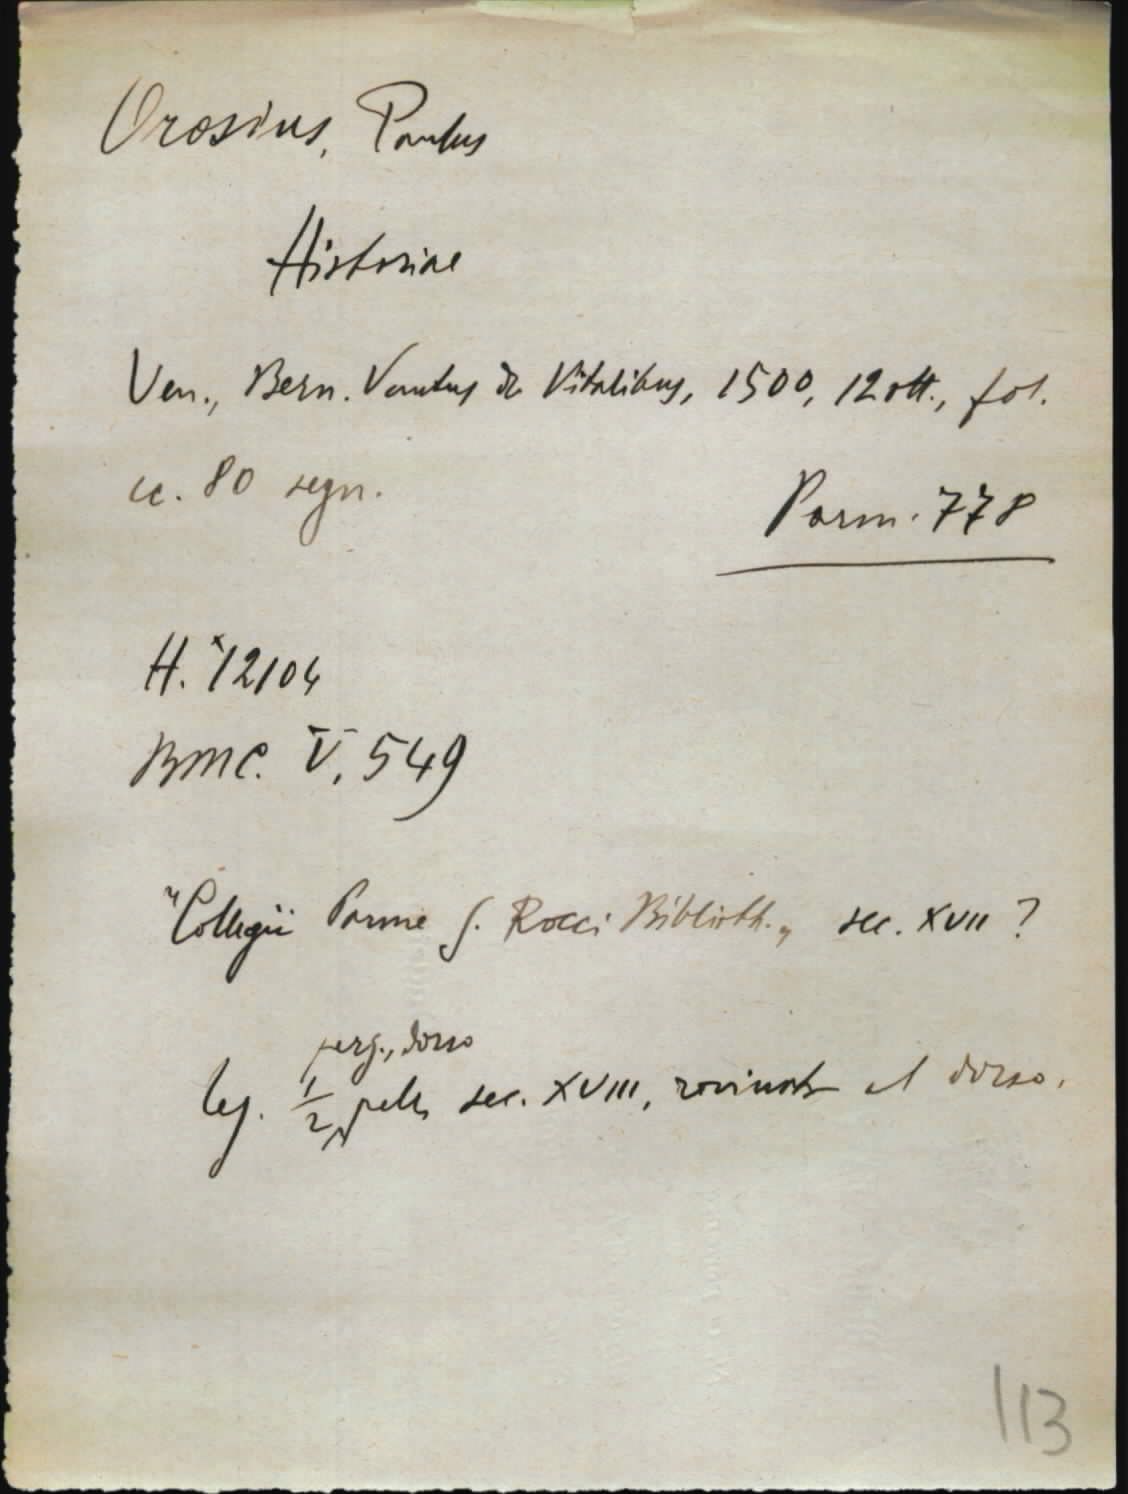 Orosius, Paulus
Historiae
Ven., Bern. Venetus de Vitalibus, 1500, 12 ott., fol.
cc. 80 segn.
Parm. 778
H. *12104
BMC. V, 549
"Collegii Parme S. Rocci Biblioth.„ sec. XVII ?
perg., dorso
leg. 1/2 pelle sec. XVIII, rovinata al dorso.
113